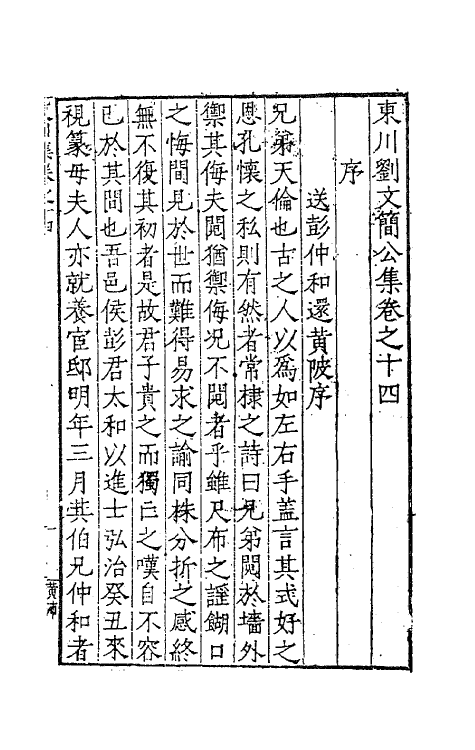 東川劉文簡公集卷之十四
序
送彭仲和還黄陂序
兄弟天倫也古之人以爲如左右手盖言其式好之
恩孔懷之私則有然者常棣之詩曰兄弟鬩於墻外
禦其侮夫鬩猶禦侮况不鬩者乎雖尺布之謡餬口
之悔間見於世而難得易求之諭同株分折之感終
無不復其初者是故君子貴之而獨亡之嘆自不容
已於其間也吾邑侯彭君太和以進士弘治癸丑來
視篆母夫人亦就養宦邸明年三月其伯兄仲和者